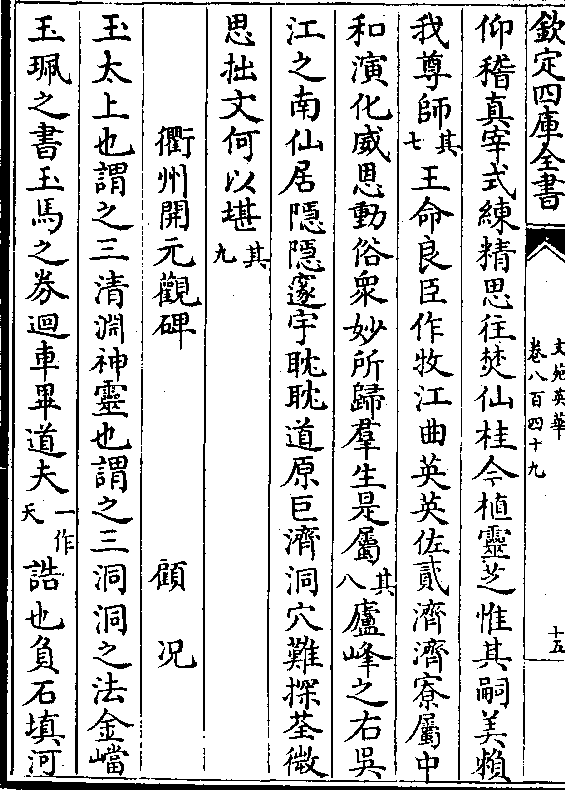 欽定四庫全書
文苑英華
卷八百四十九
十五
仰稽真宰式練精思往焚仙桂今植靈芝惟其嗣美頼
我尊師其七王命良臣作牧江曲英英佐貳濟濟寮屬中
和演化威恩動俗衆妙所歸羣生是屬其八廬峰之右吳
江之南仙居隱隱邃宇耽耽道原巨濟洞穴難探荃微
思拙文何以堪其九
衢州開元觀碑 顧况
玉太上也謂之三清淵神靈也謂之三洞洞之法金璫
玉珮之書玉馬之券迴車畢道夫一作天誥也負石填河